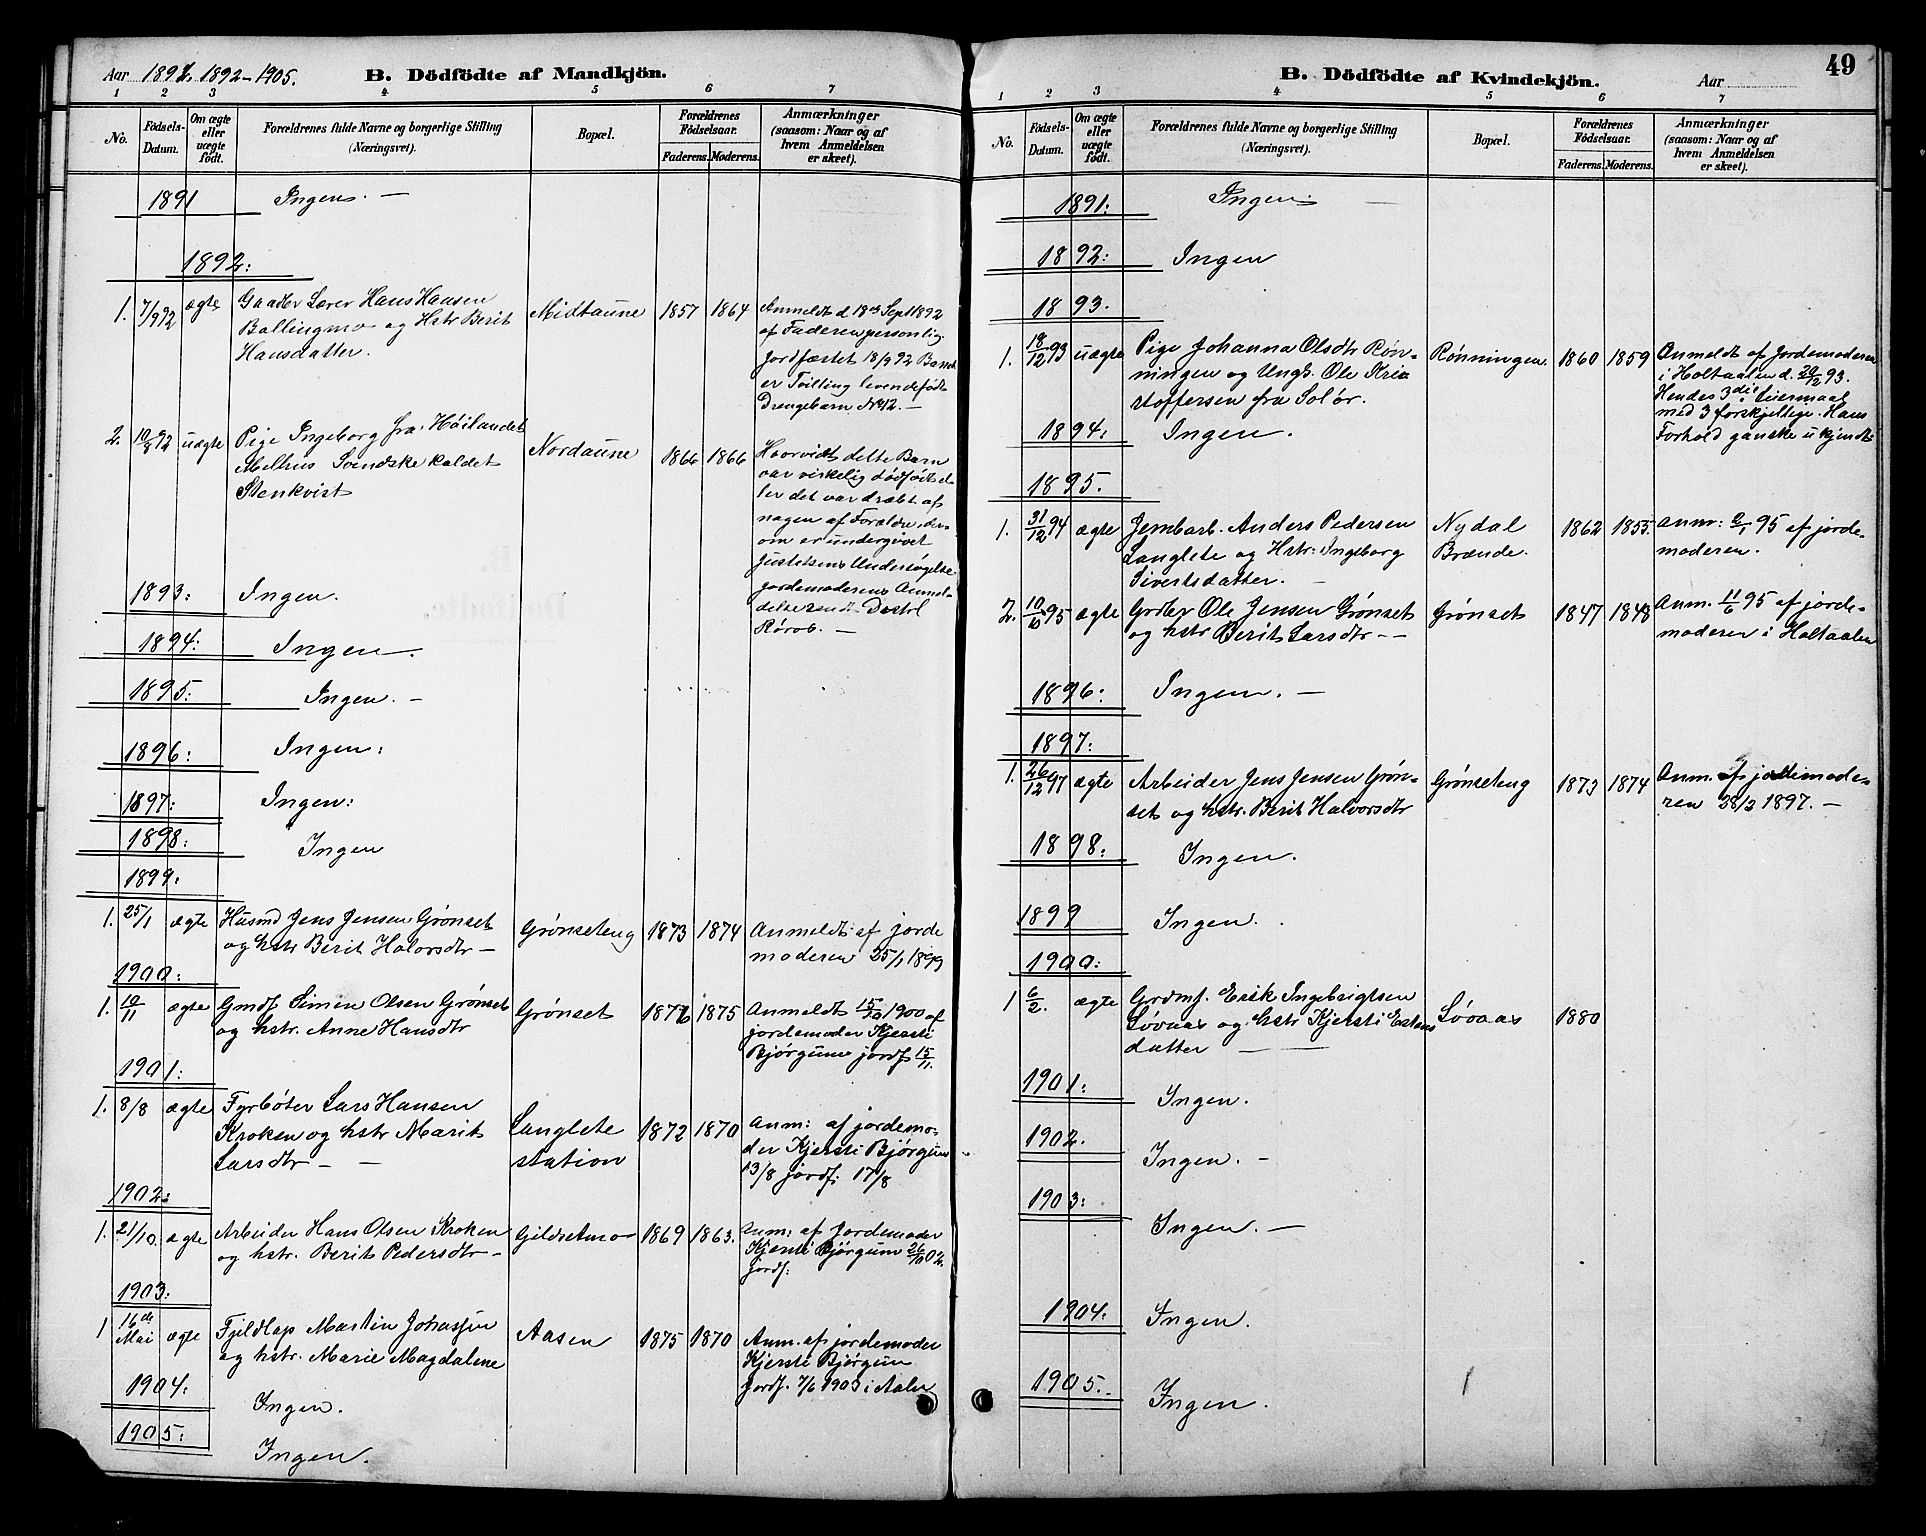 Aar 1891, 1892-1905.
B. Dödfödte af Mandkjön.
1 2 3 4 5 6 7
No.
Födsels-Datum.
Om ægte eller uægte födt.
Forældrenes fulde Navne og borgerlige Stilling (Næringsvei).
Bopæl.
Forældrenes Födselsaar.
Faderens. Moderens.
Anmærkninger (saasom: Naar og af hvem Anmeldelsen er skeet).
1891 Ingen. —
1892:
1. 7/9 92 ægte Gaardbr Lærer Hans Hansen
Ballingmo og Hstr Berit
Hansdatter.
Midtaune 1857 1864
Anmeldt d 18de Sept 1892
af Faderen personlig.
Jordfæstet 18/9 92 Barnet
er Tvilling levendefödt
Drengebarn No 12. —
2. 92 uægte Pige Ingeborg fra Höilandet
Melhus Svendske kaldet
Stenkvist
Nordaune 1866 1866
Hvorvidt dette Barn
var virkelig dödfödt el-
ler det var dræbt af
nogen af Forældre, der-
om er undergivet
Justitsens Undersögelse
jordemoderens Anmel-
delse sendt Distrl
Röros. —
1893: Ingen.
1894: Ingen.
1895: Ingen. —
1896: Ingen:
1897: Ingen:
1898: Ingen
1899:
1. 25/1 ægte Husmd Jens Jensen Grönset
og hstr Berit Halvorsdtr —
Grönseteng 1873 1874
Anmeldt af jorde
moderen 25/1 1899
1900:
1. 10/11 ægte Gmdf Simen Olsen Grönset
og hstr. Anne Hansdtr
Grönset 1876 1875
Anmeldt 1900 af
jordemoder Kjersti
Bjørgum jordf 15/11.
1901:
1. 8/8 ægte Fyrböter Lars Hansen
Kroken og hstr Marit
Larsdtr — —
Langlete
station
1872 1870
Anm: af jordemo-
der Kjersti Bjørgum
13/8 jordf: 17/8
1902:
1. 21/10. ægte Arbeider Hans Olsen Kroken
og hstr. Berit Pedersdtr —
Gildsetmo 1869 1863.
Anm: af Jordemoder
Kjersti Bjørgum 26/10 02.
jordf:
1903:
1 16de Mai ægte Fjeldlap Martin Johassen
og hstr. Marie Magdalene
Aasen 1875 1870
Anm. af jordemoder
Kjersti Bjørgum
jordf. 7/6 1903 i Aalen
1904: Ingen.
1905: Ingen.
49
B. Dödfödte af Kvindekjön.
Aar
1 2 3 4 5 6 7
No.
Födsels-Datum.
Om ægte eller uægte födt.
Forældrenes fulde Navne og borgerlige Stilling (Næringsvei).
Bopæl.
Forældrenes Födselsaar.
Faderens. Moderens.
Anmærkninger (saasom: Naar og af hvem Anmeldelsen er skeet).
1891: Ingen.
1892: Ingen
1893.
1. 18/12 93 uægte Pige Johanna Olsdtr Røn-
ningen og Ungk. Ole Kris
stoffersen fra Solör.
Rønningen. 1860 1859
Anmeldt af Jordemoderen
i Holtaalen d. 20/12 93.
Hendes 3die Leiermaal
med 3 forskjellige. Hans
Forhold ganske ukjendt
1894: Ingen.
1895.
1. 31/12 94 ægte Jernbarb. Anders Pedersen
Langlete og Hstr: Ingeborg
Sivertsdatter. —
Nydal
Brænde.
1862 1855
Anm: 2/1 95 af jorde-
moderen.
2. 10/6 95 ægte Grdbr Ole Jensen Grönset
og hstr Berit Larsdtr —
Grönset 1847 1848
Anm. 11/6 95 af jorde-
moderen i Holtaalen
1896: Ingen. —
1897:
1. 26/12 97 ægte Arbeider Jens Jensen Grön-
set og hstr. Berit Halvorsdtr
Grönseteng 1873 1874
Anm. af jordemode-
ren 28/2 1897. —
1898: Ingen.
1899 Ingen.
1900:
1 6/2. ægte Grdmf. Erik Ingebrigtsen
Løvaas og hstr Kjersti Estens
datter — —
Løvaas 1880
1901: Ingen.
1902. Ingen. —
1903: Ingen. —
1904: Ingen.
1905. Ingen.